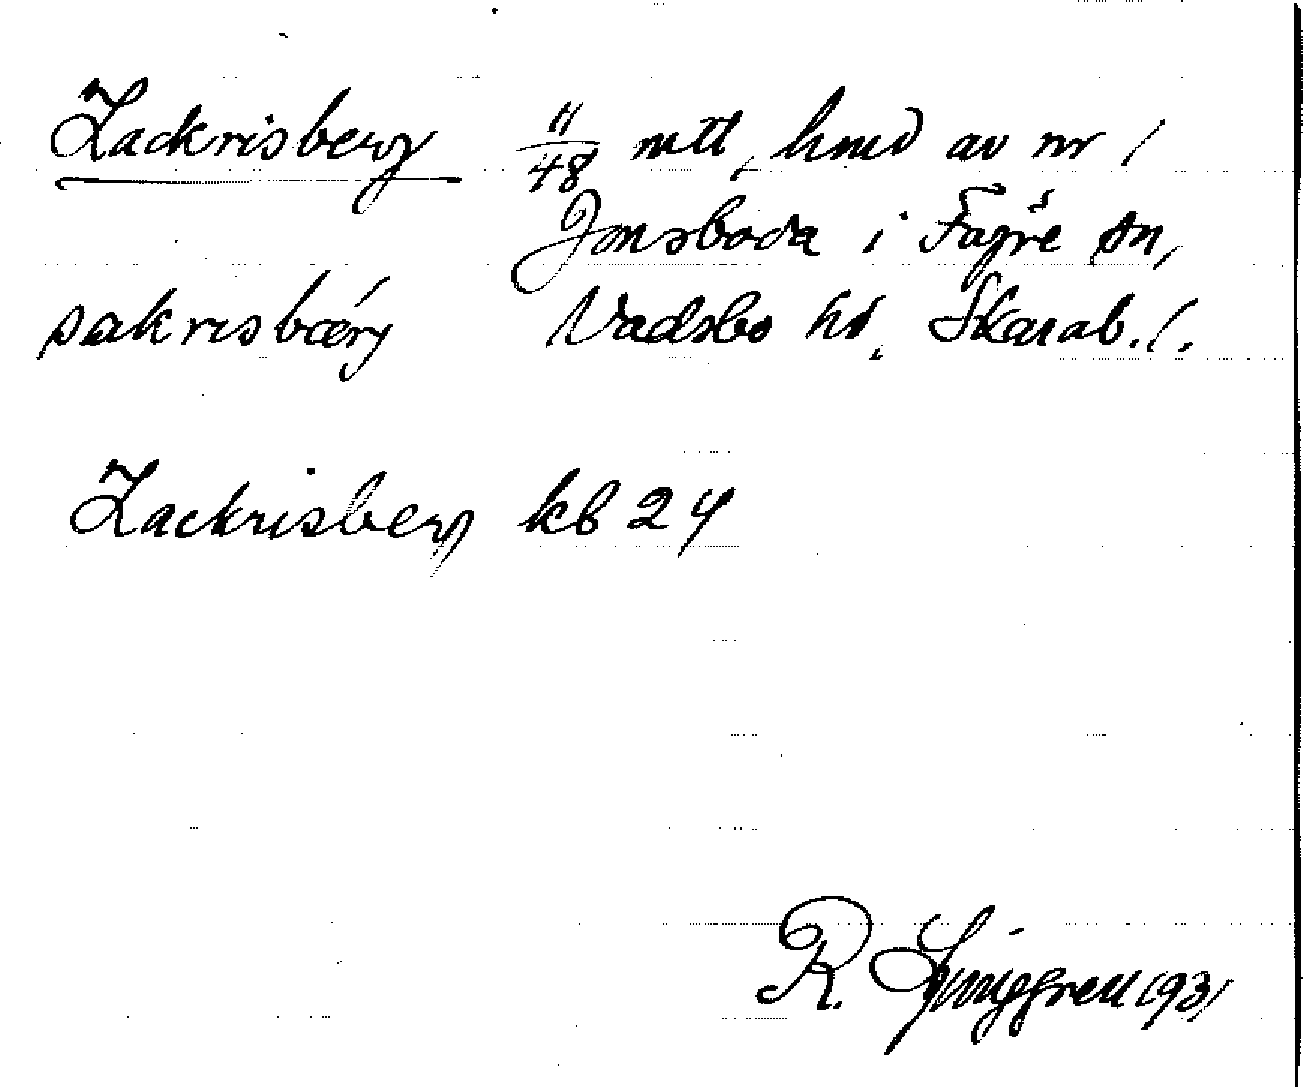 Zackrisberg 11/48 mtl, hmd av nr 1
Jonsboda i Fågre sn,
sakrisbærj Vadsbo hd, Skarab. l.
Zackrisberg kb 24
R. Ljunggren 1931